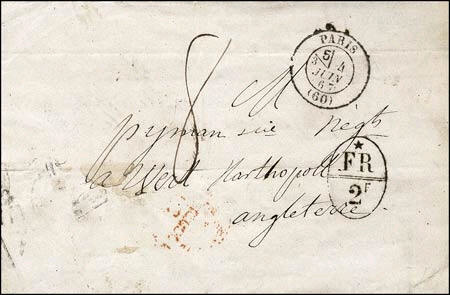 PARIS
5
4
JUIN
67
(60)
8
M
Pyman sice Negt
a West Harthopoll
angleterre
FR
2F